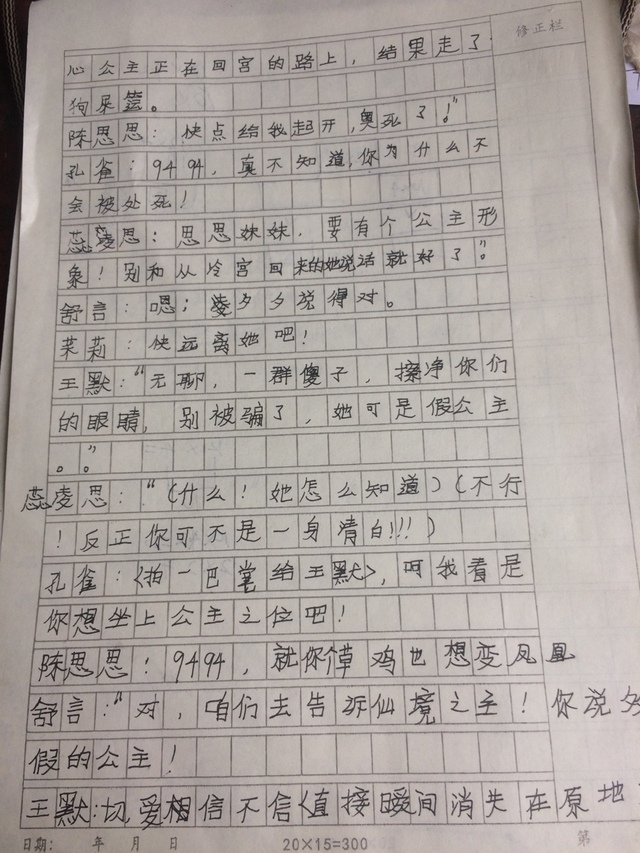 修正栏
心公主正在回宫的路上，结果走了
狗屎
陈思思：快点给我起开,臭死了！”
孔雀：9494，真不知道,你为什么不
会被处死！
蕊凌思：思思妹妹.要有个公主形
象！别和从冷宫回来的她说话就好了”。
舒言：嗯；凌夕夕说得对。
茉莉：快远离她吧！
王默：“无聊，一群傻子，擦净你们
的眼睛，别被骗了，她可是假公主
。”。
蕊凌思：“（什么！她怎么知道）（不行
！反正你可不是一身清白!!!）
孔雀：〈拍一巴掌给王默〉，呵我看是
你想坐上公主之位吧！
陈思思：9494，就你个草鸡也想变凤凰
舒言：“对，咱们去告诉仙境之主！你说夕
假的公主！
王默:切,爱相信不信〈直接瞬间消失在原地
日期： 年 月 日 20×15=300 第